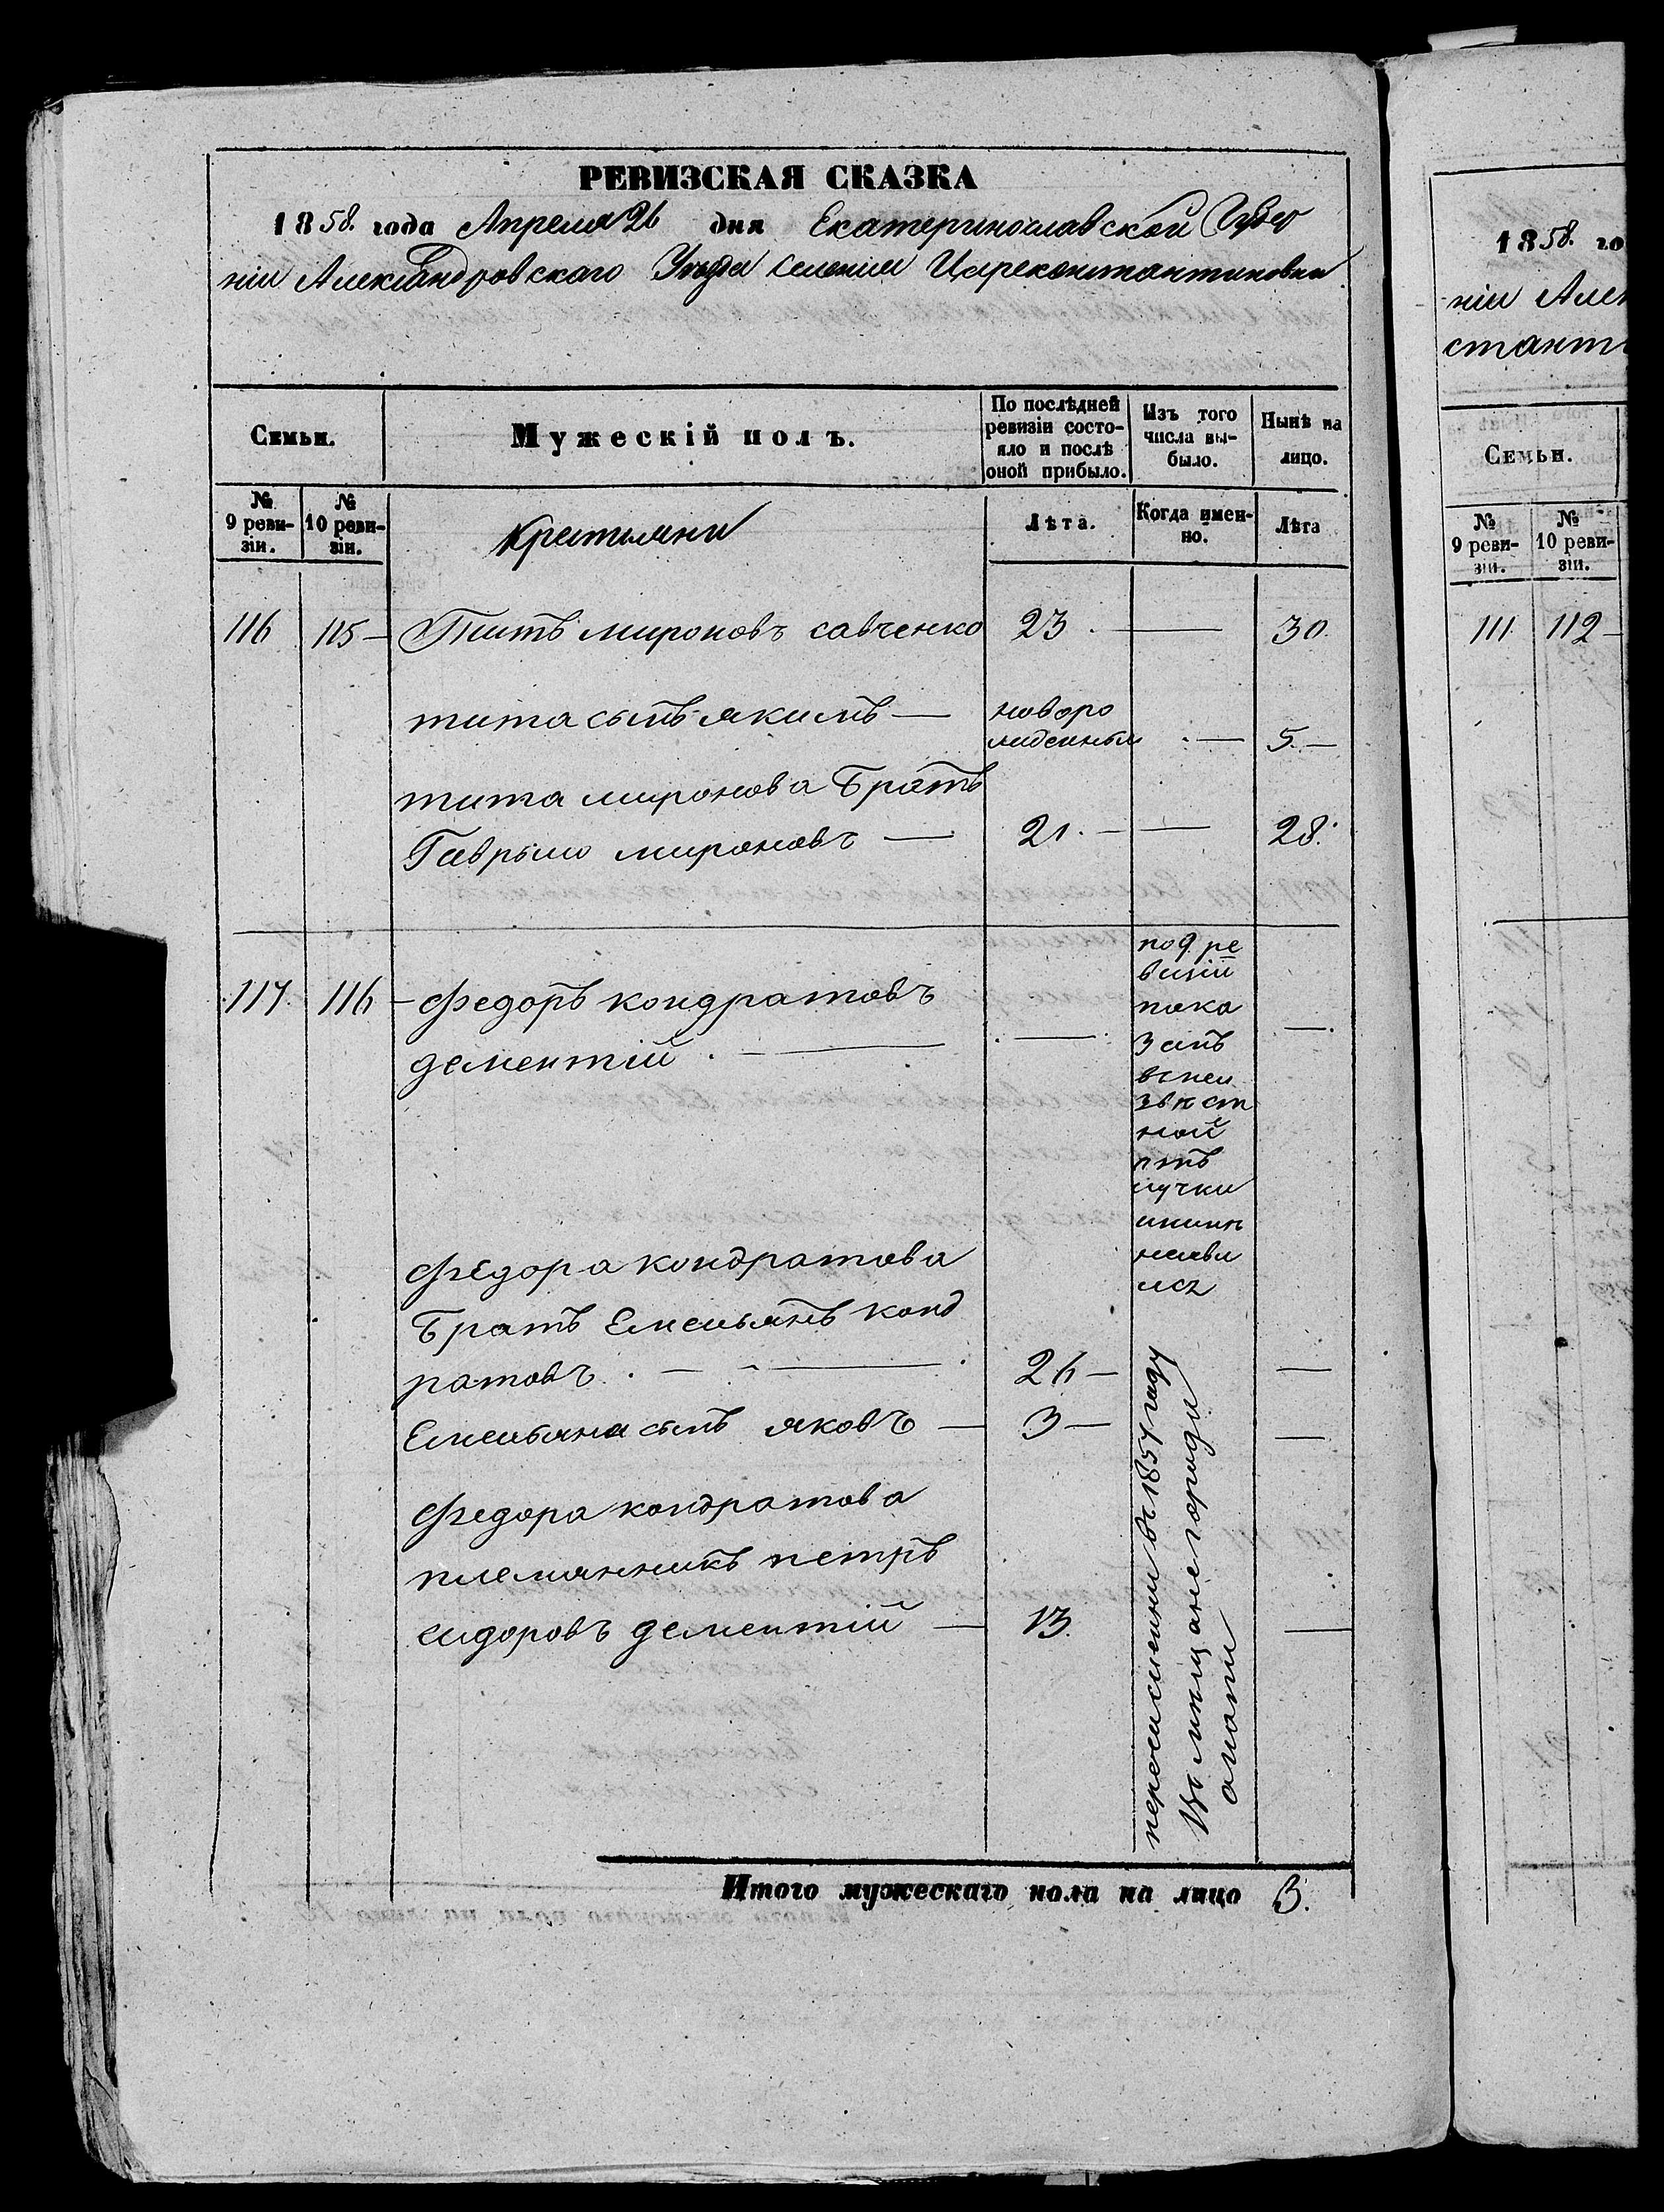 РЕВИЗСКАЯ СКАЗКА
1858. года Апреля 26 дня Екатеринославской Губер
ніи Александровскаго Уезда селения Цареконстантиновки
Семьи.
Мужескій полъ.
По послѣдней ревизіи состояло и послѣ оной прибыло.
Изъ того числа выбыло.
Нынѣ на лицо.
№ 9 ревизіи.
№ 10 ревизіи.
Крестьяни
Лѣта.
Когда именно.
Лѣта
116 115 — Титъ мироновъ савченко 23. — 30.
тита сынъ якимъ — новоро
жденный — 5. —
тита миронова Братъ
Гаврыло мироновъ — 21. — — 28.
117. 116 — Федоръ кондратовъ
дементій. — — —
по 9. ре
визіи
пока
занъ
въ неи
звѣст
ной
отъ
лучки
и нын
неяви
лся
Федора кондратова
Братъ Емельянъ конд
ратовъ. — 26 — —
Емельяна сынъ яковъ — 3 — —
Федора кондратова
племянникъ петръ
сидоровъ дементій — 13. —
перечислени въ 1857 году
въ мищане города
Итого мужескаго пола на лицо 3.
1858. го
ніи Алек
станти
Семьи.
№ 9 ревизіи.
№ 10 ревизіи.
111. 112 —